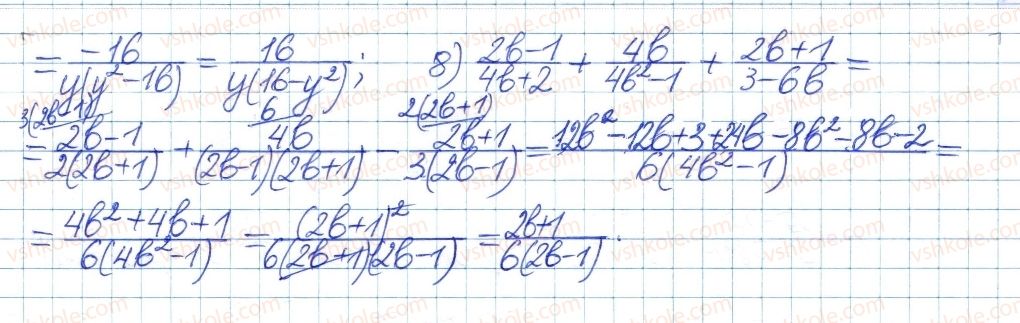 = -16/(y(y²-16)) = 16/(y(16-y²)); 8) (2b-1)/(4b+2) + 4b/(4b²-1) + (2b+1)/(3-6b) =
3(2b-1) 6 2(2b+1)
= (2b-1)/(2(2b+1)) + 4b/((2b-1)(2b+1)) - (2b+1)/(3(2b-1)) = (12b²-12b+3+24b-8b²-8b-2)/(6(4b²-1)) =
= (4b²+4b+1)/(6(4b²-1)) = (2b+1)²/(6(2b+1)(2b-1)) = (2b+1)/(6(2b-1)).